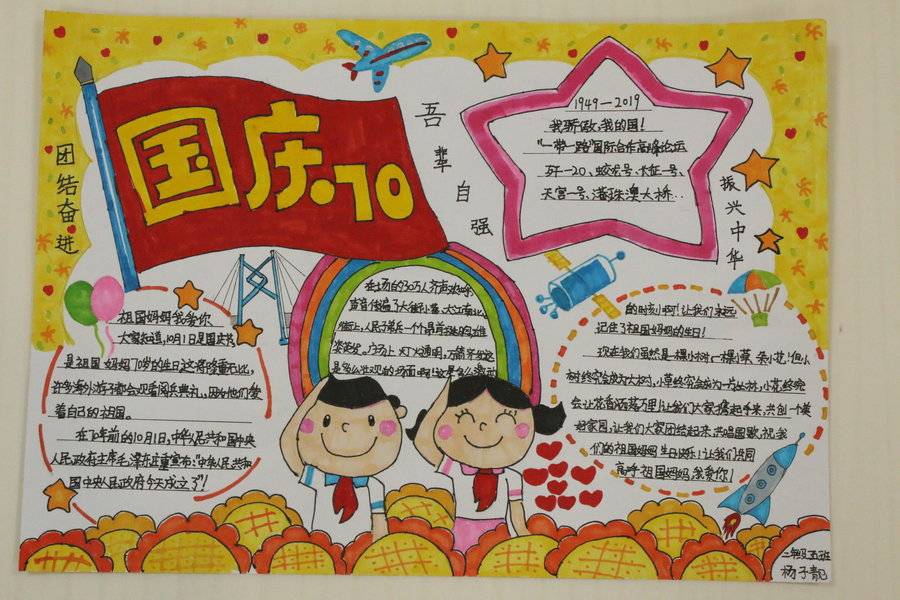 国庆·70
团结奋进
吾辈自强
振兴中华
1949—2019
我骄傲,我的国!
"一带一路"国际合作高峰论坛
歼—20、蛟龙号、长征一号、
天宫一号、港珠澳大桥…
祖国妈妈我爱你
大家知道,10月1日是国庆节
是祖国妈妈70岁的生日,这将隆重无比,
许多海外游子都会观看阅兵典礼,因为他们爱
着自己的祖国。
在70年前的10月1日,中华人民共和国中央
人民政府主席毛泽东庄重宣布:"中华人民共和
国中央人民政府今天成立了"!
在场的30万人齐声欢呼,
声音传遍了大街小巷、大江南北,
广场上灯火通明,万箭齐发
是多么壮观的场面啊!这是多么激动
的时刻啊!让我们永远
记住了祖国妈妈的生日!
现在我们虽然是一棵小树、一棵小草、朵小花!但小
树终究会成为大树,小草终究会成为一片丛林,小花终究
会让花香洒落万里!让我们大家携起手来,共创一个美
好家园,让我们大家团结起来,共唱国歌,祝我
们的祖国妈妈生日快乐!让我们共同
高呼:祖国妈妈,我爱你!
二年级五班
杨子靓